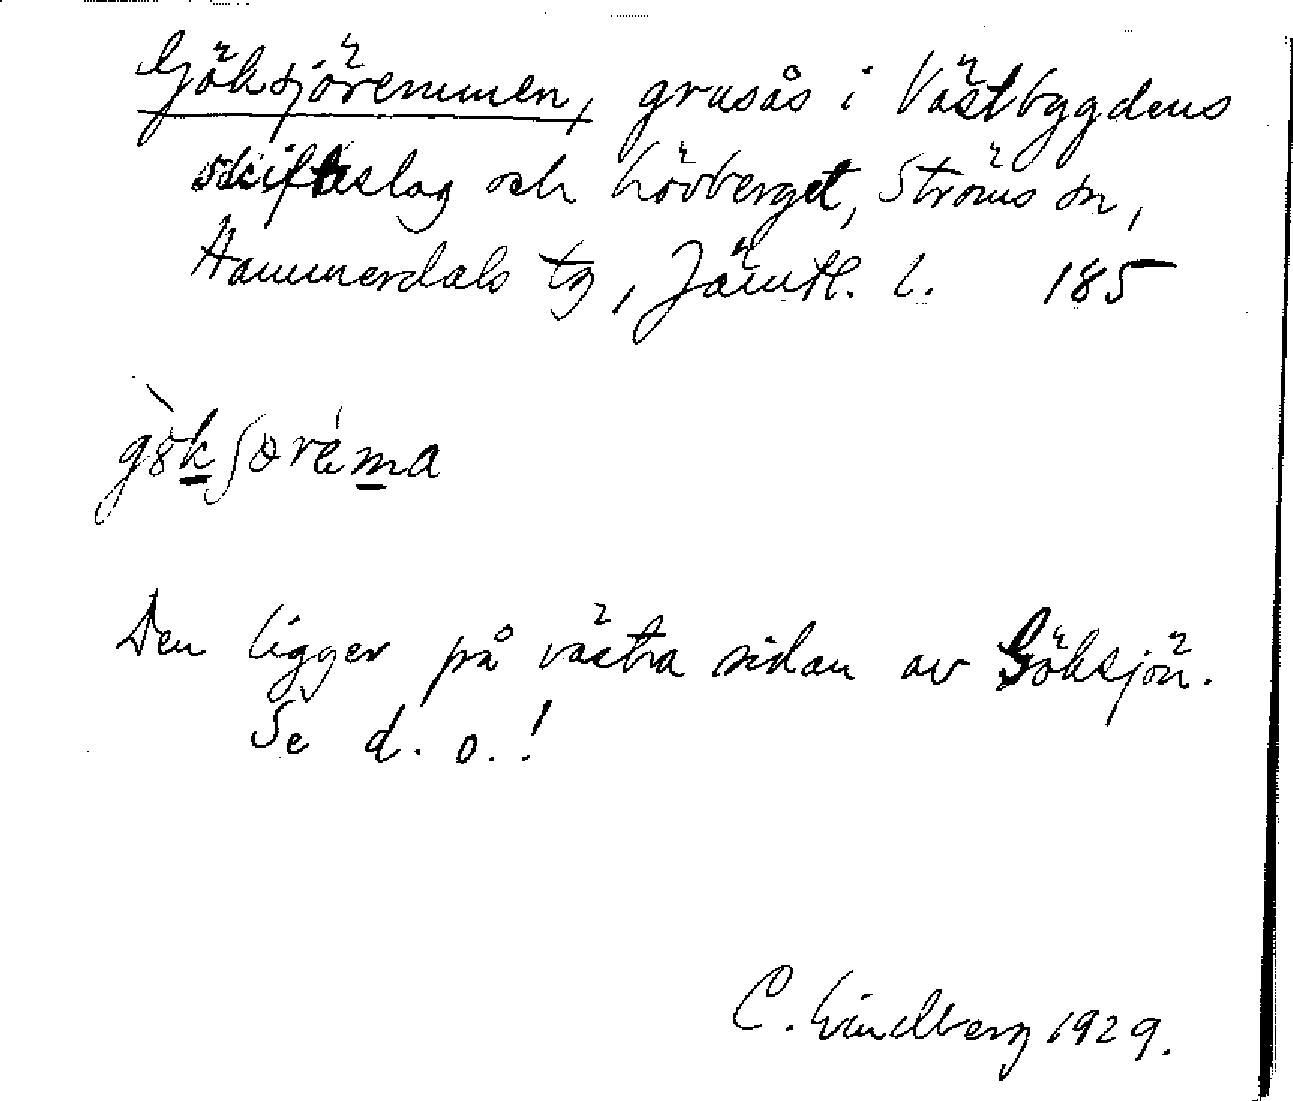 Göksjöremmen, grusås i Västbygdens
skifteslag och Lövberget, Ströms sn,
Hammerdals tg, Jämtl. l. 185
gö̀kʃøréma
Den ligger på västra sidan av Göksjön.
Se d. o.!
C. Lindberg 1929.